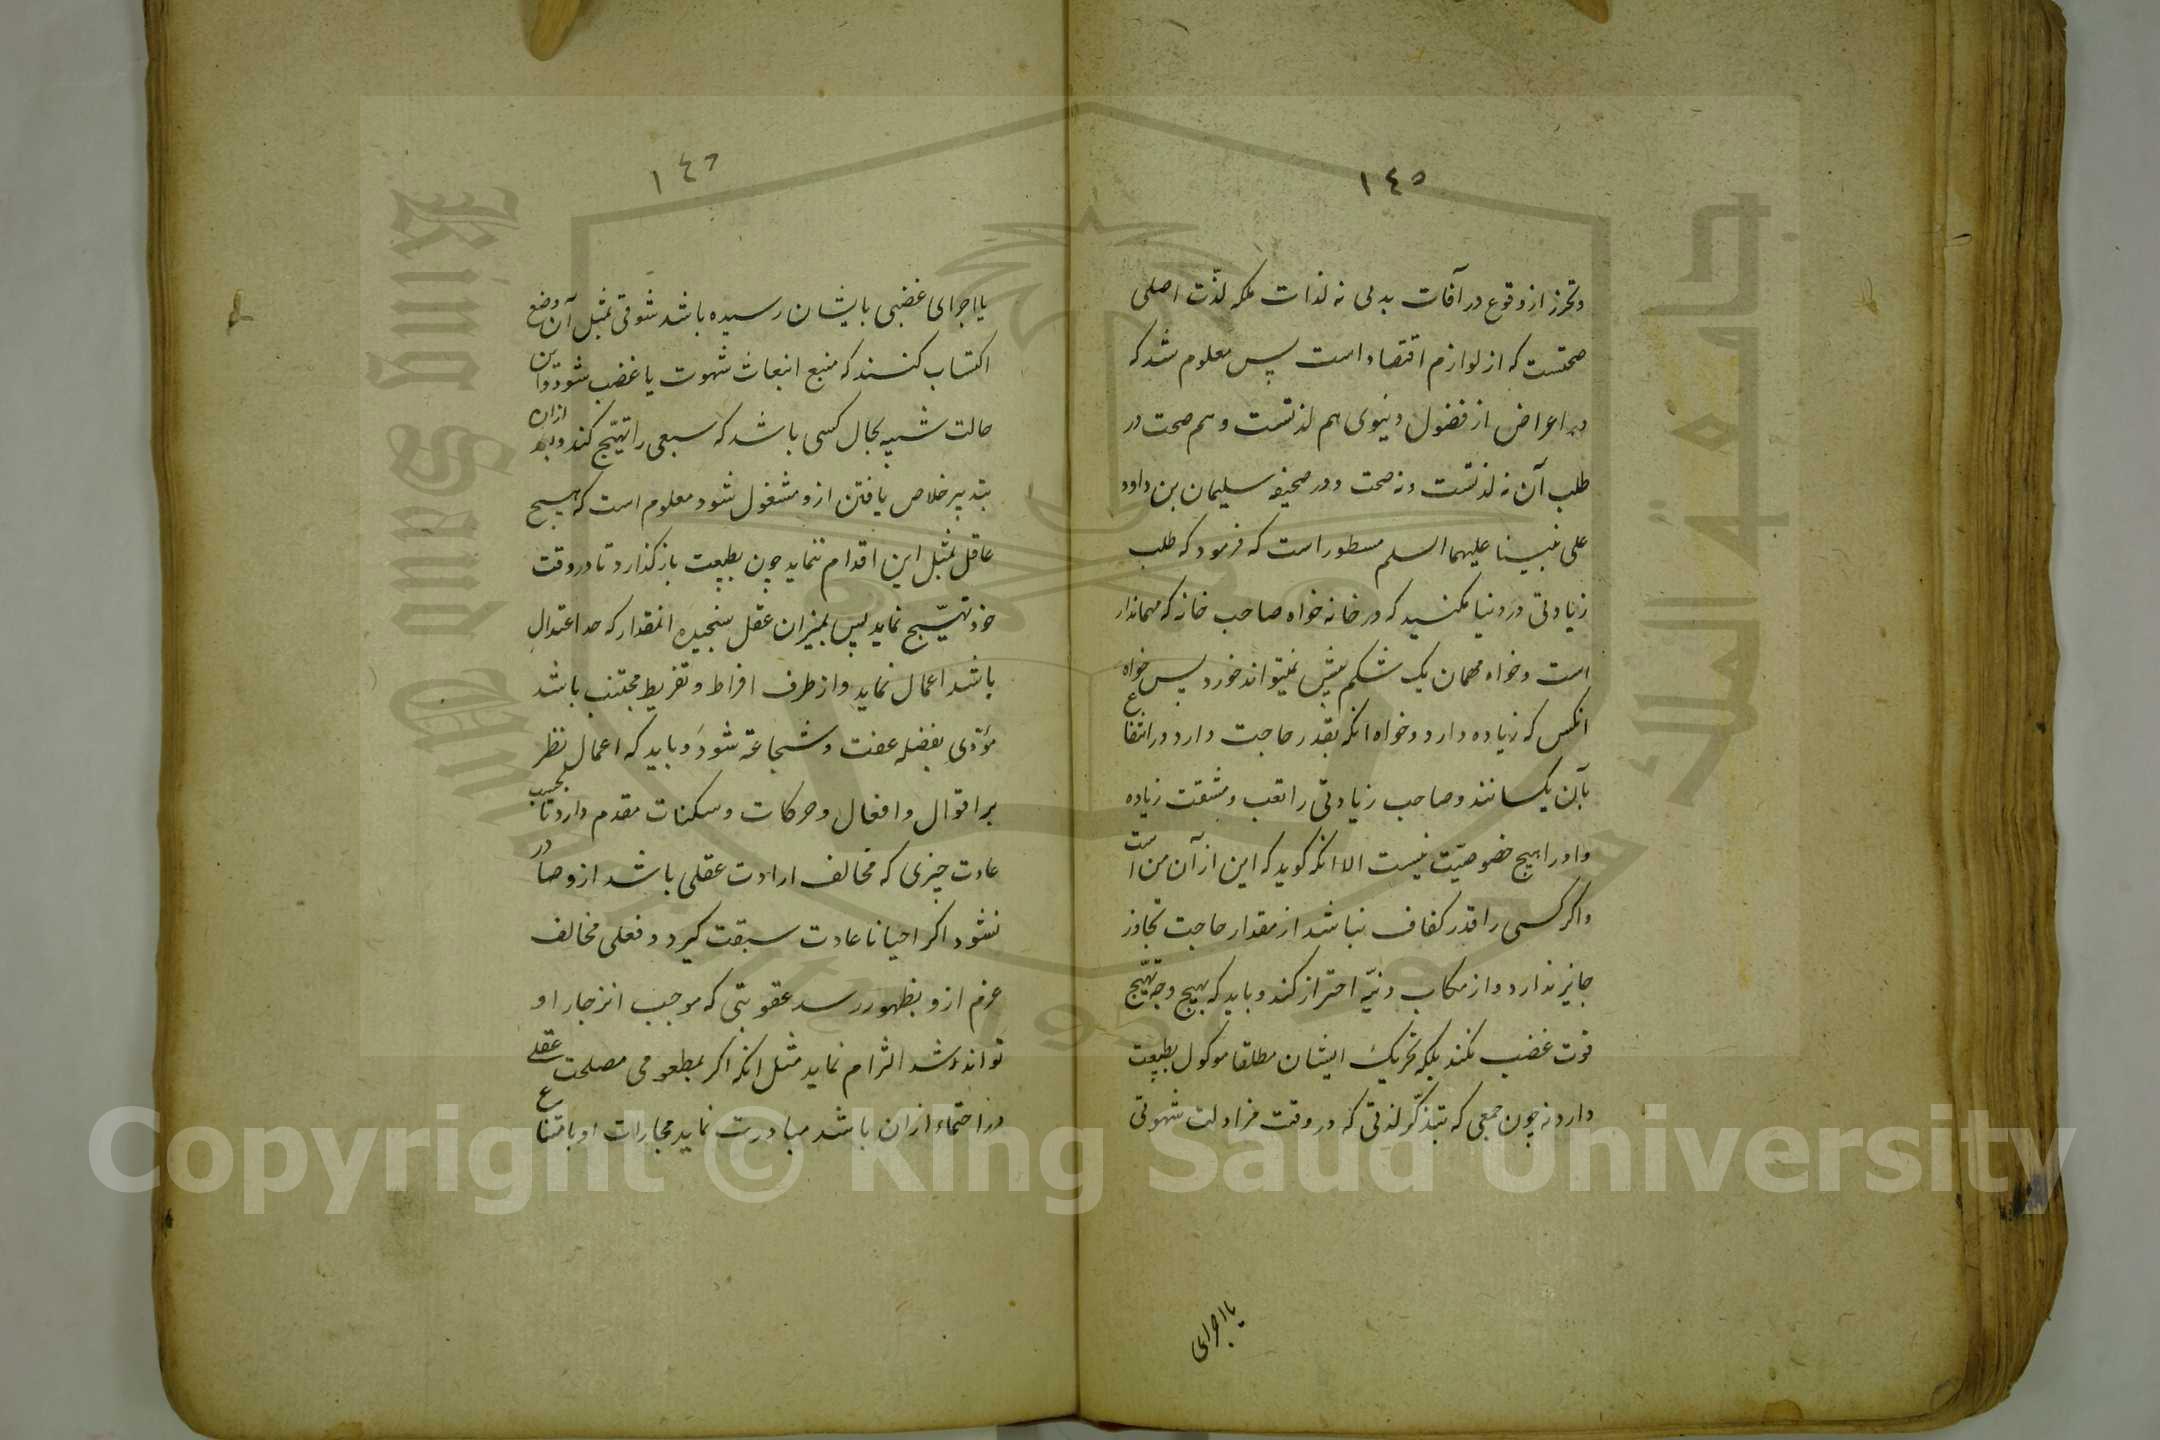 ١٤٥
وتحرز از وقوع در آفات بدنی نه لذات بلکه لذّت اصلی
صحتست که از لوازم اقتصاد است پس معلوم شد که
در اعراض از فضول دنیوی هم لذتست و هم صحت در
طلب آن نه لذتست ونه صحت ودر صحیفه سلیمان بن داود
علی نبینا علیهما السلم مسطور است که فرمود که طلب
زیادتی در دنیا مکنید که در خانه خواه صاحب خانه که مهماندار
است وخواه مهمان یک شکم بیش نمیتواند خورد پس خواه
انکس که زیاده دارد وخواه انکه بقدر حاجت دارد در انتفاع
بآن یکسانند وصاحب زیادتی را تعب ومشقت زیاده
واورا هیچ خصوصیّت نیست الا انکه کوید که این از آن من است
واکر کسی را قدر کفاف نباشد از مقدار حاجت تجاوز
جایز ندارد واز مکاسب دنیّه احتراز کند وباید که بهیچ وجه تهیّج
قوت غضب نکند بلکه تحریک ایشان مطلقا موکول بطبیعت
دارد نه چون جمعی که بتذکّر لذتی که در وقت مزاولت شهوتی
یا اجرای
١٤٦
یا اجرای غضبی بایشان رسیده باشد شوقی بمثل آن وضع
اکتساب کنند که منبع انبعاث شهوت یا غضب شود واین
حالت شبیه بحال کسی باشد که سبعی را تهیّج کند وبعد ازان
بتدبیر خلاص یافتن ازو مشغول شود معلوم است که هیچ
عاقل بمثل این اقدام ننماید چون بطبیعت بازکذارد تا در وقت
خود تهییج نماید پس بمیزان عقل سنجیده انمقدار که حد اعتدال
باشد اعمال نماید واز طرف افراط وتفریط مجتنب باشد
مؤدّی بفضیله عفت وشجاعة شود وباید که اعمال نظر
بر اقوال وافعال وحرکات وسکنات مقدم دارد تا بحسب
عادت چیزی که مخالف ارادت عقلی باشد ازو صادر
نشود اکر احیانا عادت سبقت کیرد وفعلی مخالف
عزم ازو بظهور رسد عقوبتی که موجب انزجار او
تواند شد التزام نماید مثل انکه اکر بمطعومی مصلحت عقلی
در احتماء ازان باشد مبادرت نماید مجارات او بامتناع
Copyright © King Saud University